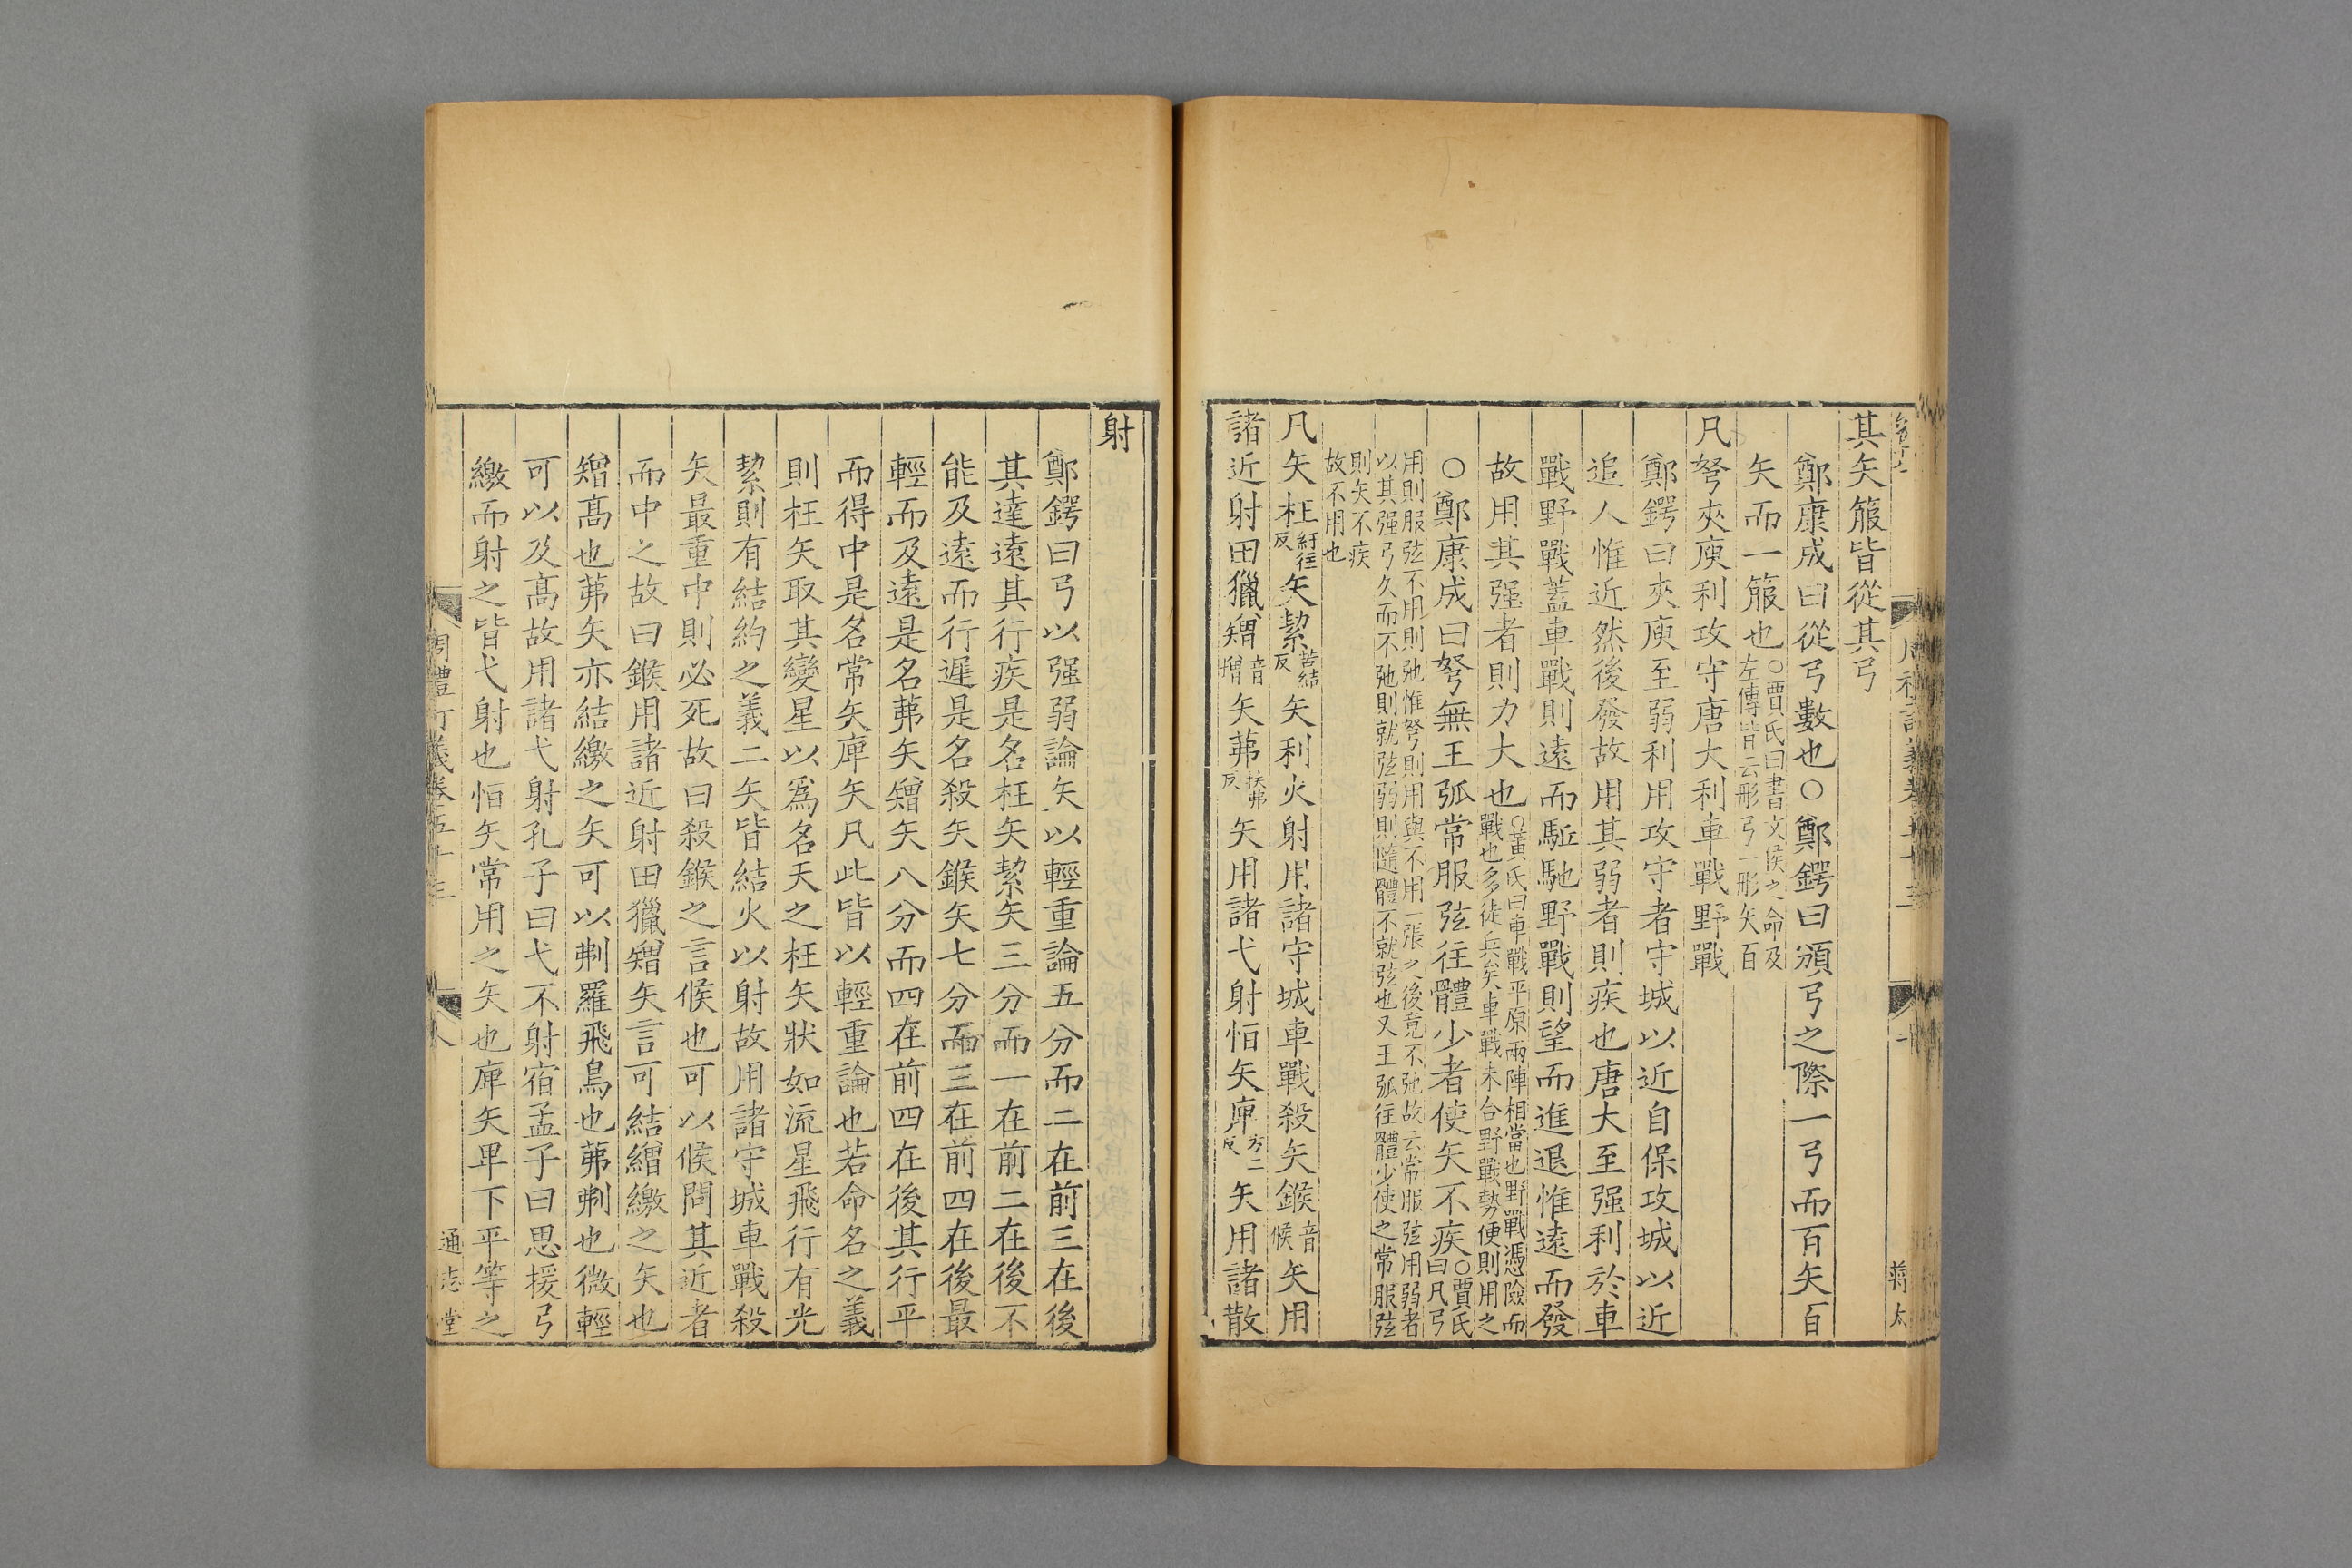 其矢箙皆從其弓
鄭康成曰從弓數也○鄭鍔曰頒弓之際一弓而百矢百
矢而一箙也○賈氏曰書文侯之命及
左傳皆云彤弓一彤矢百
凡弩夾庾利攻守唐大利車戰野戰
鄭鍔曰夾庾至弱利用攻守者守城以近自保攻城以近
追人惟近然後發故用其弱者則疾也唐大至强利於車
戰野戰蓋車戰則遠而駈馳野戰則望而進退惟遠而發
故用其强者則力大也○黃氏曰車戰平原兩陣相當也野戰憑險而
戰也多徒兵矣車戰未合野戰勢便則用之
○鄭康成曰弩無王弧常服弦往體少者使矢不疾○賈氏
曰凡弓
用則服弦不用則弛惟弩則用與不用一張之後竟不弛故云常服弦用弱者
以其强弓久而不弛則就弦弱則隨體不就弦也又王弧往體少使之常服弦
則矢不疾
故不用也
凡矢枉紆往
反矢絜苦結
反矢利火射用諸守城車戰殺矢鍭音
候矢用
諸近射田獵矰音
增矢茀扶弗
反矢用諸弋射恒矢庳方二
反矢用諸散
蔣太
射
鄭鍔曰弓以强弱論矢以輕重論五分而二在前三在後
其達遠其行疾是名枉矢絜矢三分而一在前二在後不
能及遠而行遲是名殺矢鍭矢七分而三在前四在後最
輕而及遠是名茀矢矰矢八分而四在前四在後其行平
而得中是名常矢庳矢凡此皆以輕重論也若命名之義
則枉矢取其變星以爲名天之枉矢狀如流星飛行有光
絜則有結約之義二矢皆結火以射故用諸守城車戰殺
矢最重中則必死故曰殺鍭之言候也可以候問其近者
而中之故曰鍭用諸近射田獵矰矢言可結繒繳之矢也
矰髙也茀矢亦結繳之矢可以刜羅飛鳥也茀刜也微輕
可以及髙故用諸弋射孔子曰弋不射宿孟子曰思援弓
繳而射之皆弋射也恒矢常用之矢也庳矢卑下平等之
周禮訂義卷五十三
八
通志堂